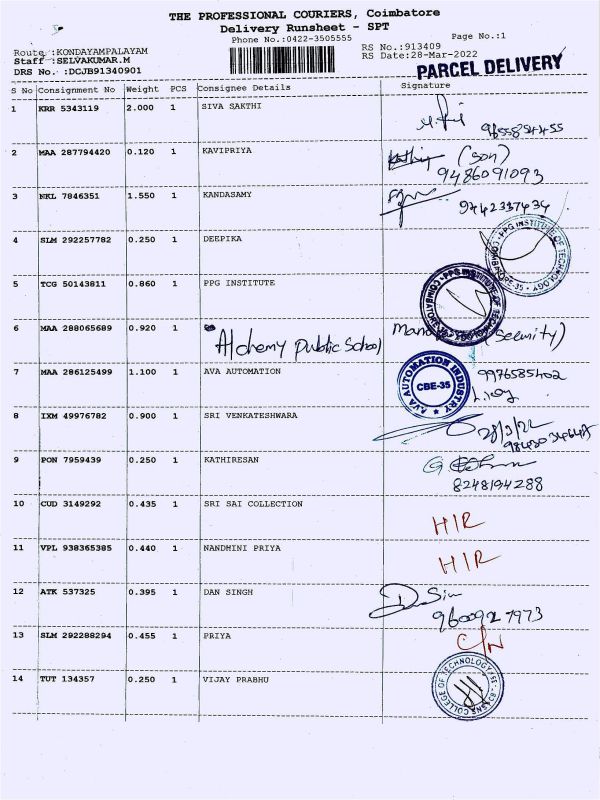 THE PROFESSIONAL COURIERS, Coimbatore
Delivery Runsheet - SPT
Phone No.:0422-3505555
Page No.:1
Route :KONDAYAMPALAYAM
RS No.:913409
Staff :SELVAKUMAR.M
RS Date:28-Mar-2022
DRS No. :DCJB91340901
PARCEL DELIVERY
S No Consignment No Weight PCS Consignee Details Signature
1 KRR 5343119 2.000 1 SIVA SAKTHI
2 MAA 287794420 0.120 1 KAVIPRIYA (son)
9486091093
3 NKL 7846351 1.550 1 KANDASAMY 9742337434
4 SLM 292257782 0.250 1 DEEPIKA
PPG INSTITUTE OF TECHNOLOGY COIMBATORE-35
5 TCG 50143811 0.860 1 PPG INSTITUTE
PPG INSTITUTE OF TECHNOLOGY COIMBATORE
6 MAA 288065689 0.920 1 Alchemy Public School (Security)
7 MAA 286125499 1.100 1 AVA AUTOMATION 9976585402
AVA AUTOMATION INDUSTRY
CBE-35
8 IXM 49976782 0.900 1 SRI VENKATESHWARA 28/3/22
9 PON 7959439 0.250 1 KATHIRESAN
8248194288
10 CUD 3149292 0.435 1 SRI SAI COLLECTION H/R
11 VPL 938365385 0.440 1 NANDHINI PRIYA H/R
12 ATK 537325 0.395 1 DAN SINGH
9600927973
13 SLM 292288294 0.455 1 PRIYA C/N
14 TUT 134357 0.250 1 VIJAY PRABHU
COLLEGE OF TECHNOLOGY